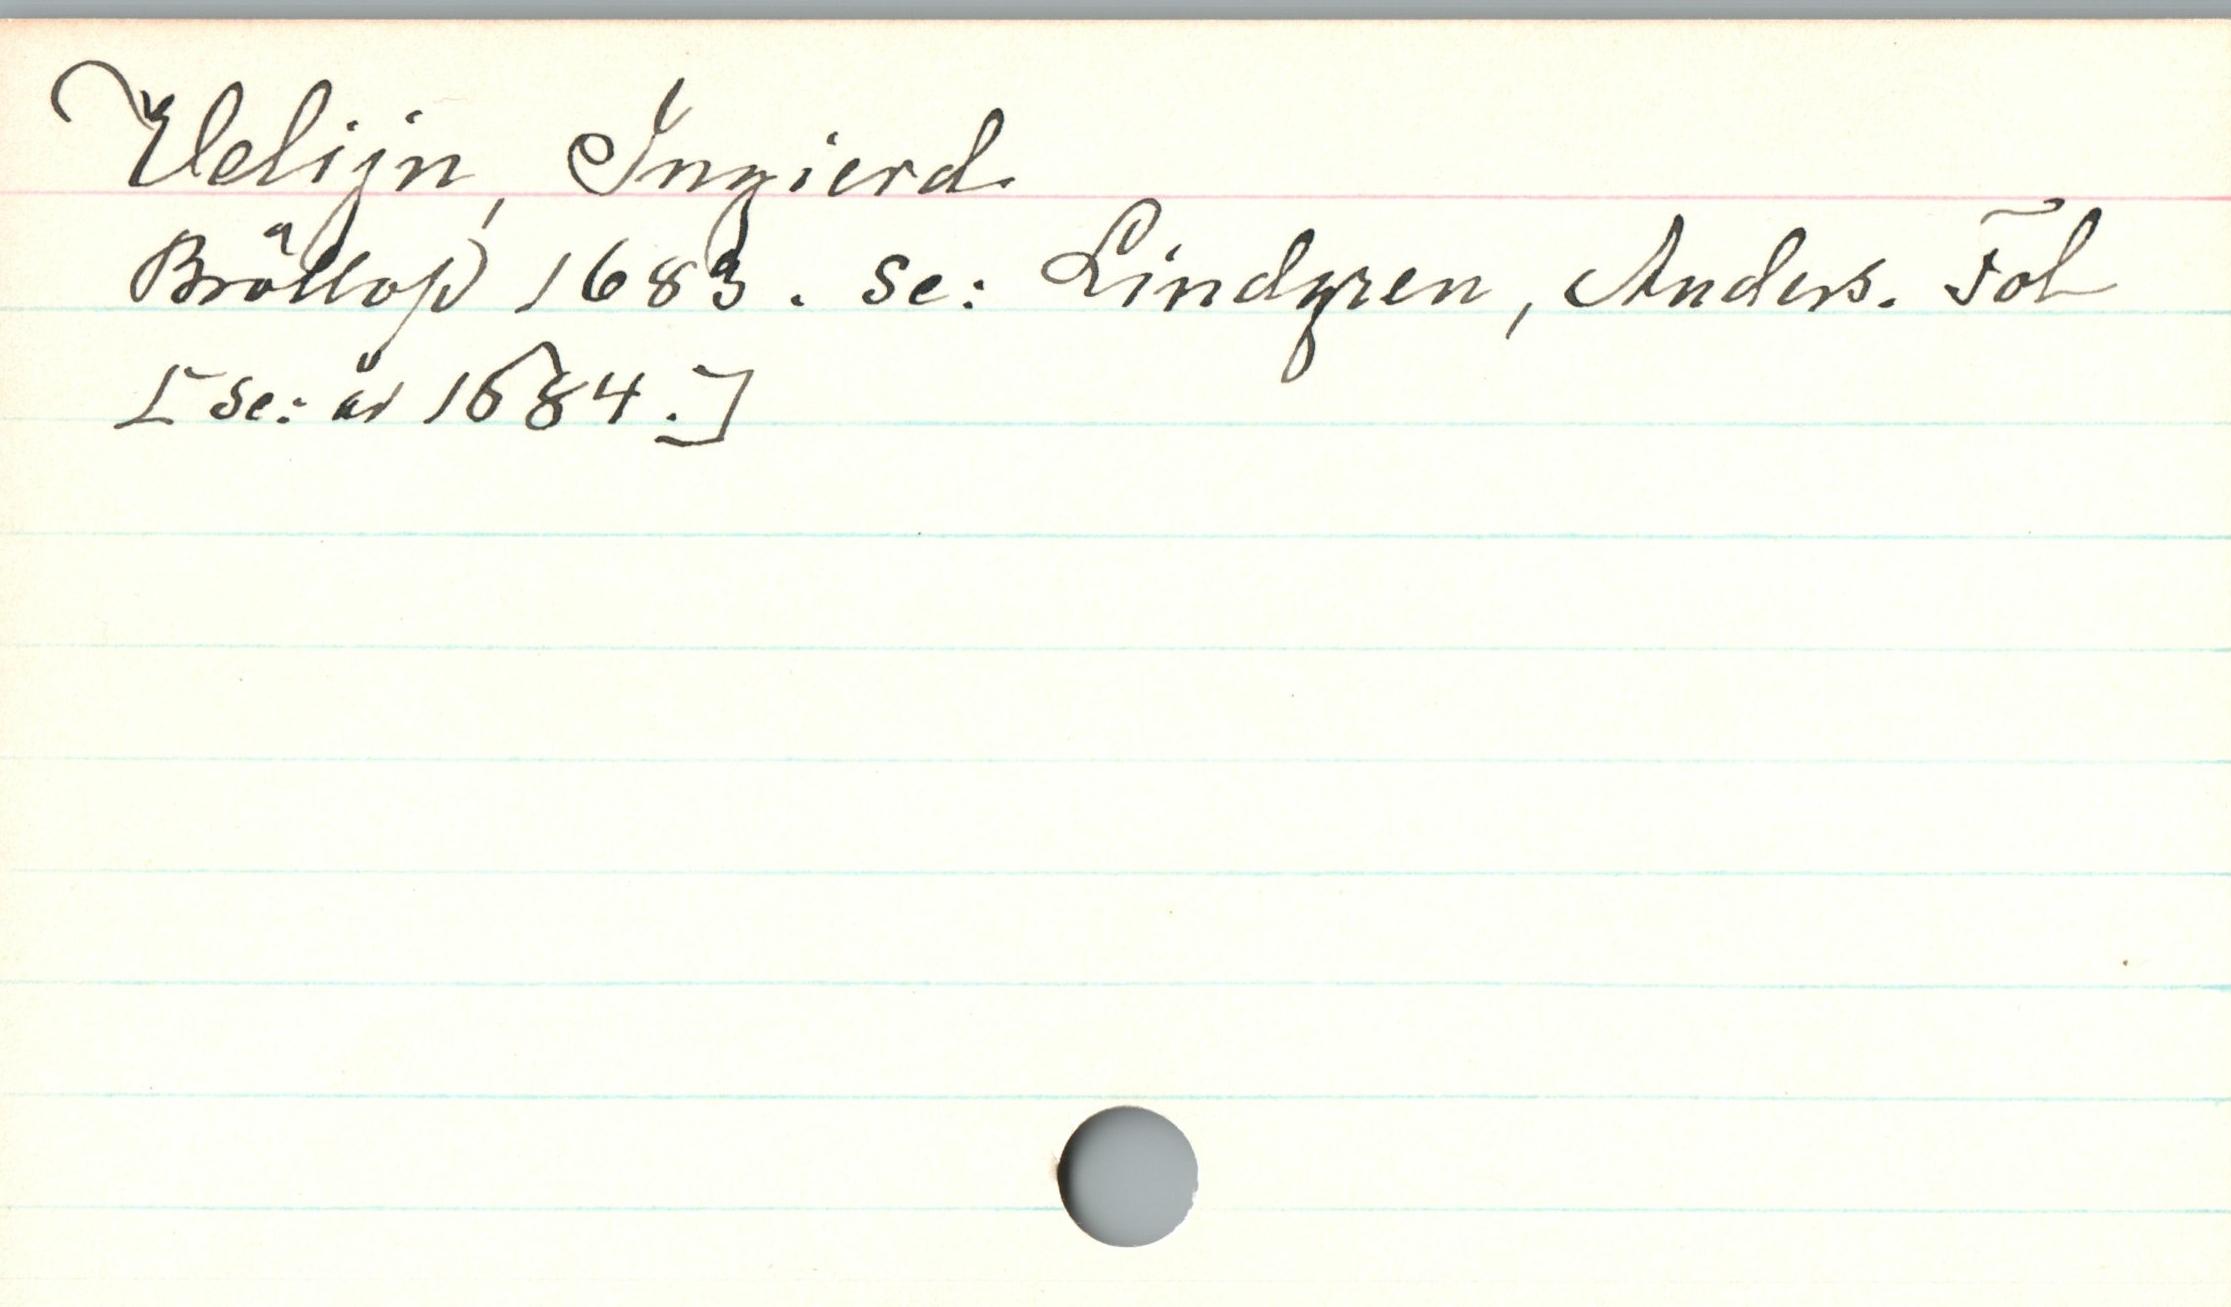 Velijn, Ingierd.
Bröllop 1683. se: Lindgren, Anders. Fol
[se: år 1684.]